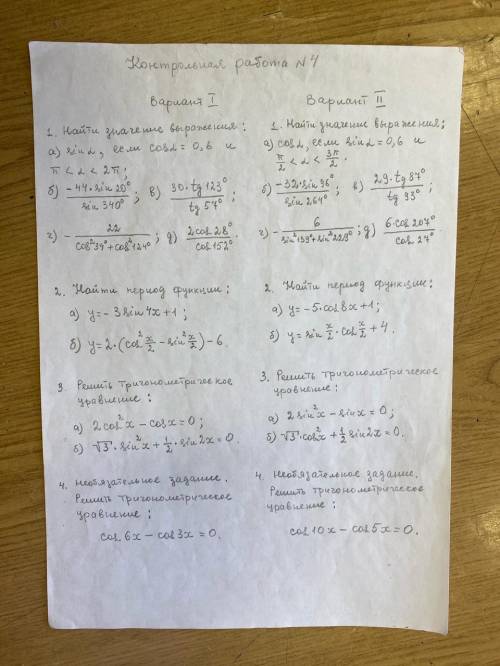 Контрольная работа N4
Вариант I
1. Найти значение выражения:
а) sin α, если cos α = 0,6 и
π < α < 2π;
б) -44·sin 20° / sin 340°; в) 30·tg 123° / tg 57°;
г) - 22 / cos²39°+cos²124°; д) 2cos 28° / cos 152°.
2. Найти период функции:
а) y = -3 sin 4x + 1;
б) y = 2·(cos² x/2 - sin² x/2) - 6.
3. Решить тригонометрическое
уравнение:
а) 2cos²x - cos x = 0;
б) √3·sin²x + 1/2·sin 2x = 0.
4. Необязательное задание.
Решить тригонометрическое
уравнение:
cos 6x - cos 3x = 0.
Вариант II
1. Найти значение выражения;
а) cos α, если sin α = 0,6 и
π/2 < α < 3π/2.
б) -32·sin 96° / sin 264°; в) 29·tg 87° / tg 93°;
г) - 6 / sin²139°+sin²229°; д) 6·cos 207° / cos 27°
2. Найти период функции:
а) y = -5·cos 8x + 1;
б) y = sin x/2 · cos x/2 + 4.
3. Решить тригонометрическое
уравнение:
а) 2 sin²x - sin x = 0;
б) √3·cos²x + 1/2 sin 2x = 0.
4. Необязательное задание.
Решить тригонометрическое
уравнение:
cos 10x - cos 5x = 0.